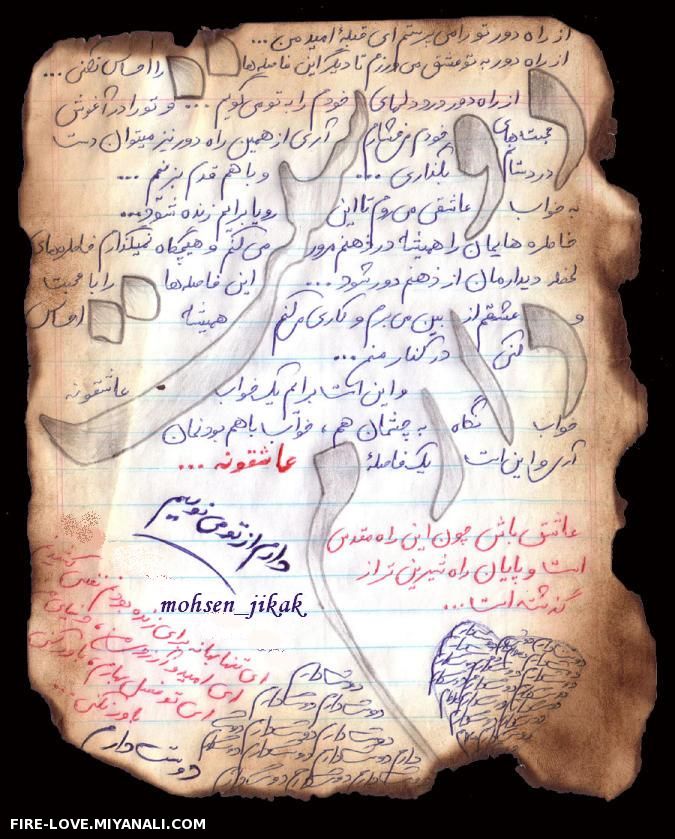 از راه دور تو را می پرستم ای قبلهٔ امید من ...
از راه دور به تو عشق می ورزم تا دیگر این فاصله ها را احساس نکنی ...
از راه دور درد دلهای خودم را به تو می گویم ... و تو را در آغوش
محبت های خودم می فشارم آری از همین راه دور نیز میتوان دست
در دستانم بگذاری ... و با هم قدم بزنیم ...
به خواب عاشقی می روم تا این رویا برایم زنده شود ...
خاطره هایمان را همیشه در ذهنم مرور می کنم و هیچگاه نمیگذارم خاطره های
لحظه دیدارمان از ذهنم دور شود ... این فاصله ها را با محبت
و عشقم از بین می برم و کاری می کنم همیشه احساس
کنی در کنار منم ...
و این است برایم یک خواب عاشقونه
خواب نگاه به چشمان هم ، خواب با هم بودنمان
آری و این است یک فاصلهٔ عاشقونه ...
عاشق باش چون این راه مقدس
است و پایان راه شیرین تر از
گذشته است ...
دارم از تو می نویسم
mohsen_jikak
ای تنها بهانه برای زنده بودنم نفس کشیدنم
ای امید و آرزوی من
باور کن
دوستت دارم
دوستت دارم دوستت دارم
FIRE-LOVE.MIYANALI.COM